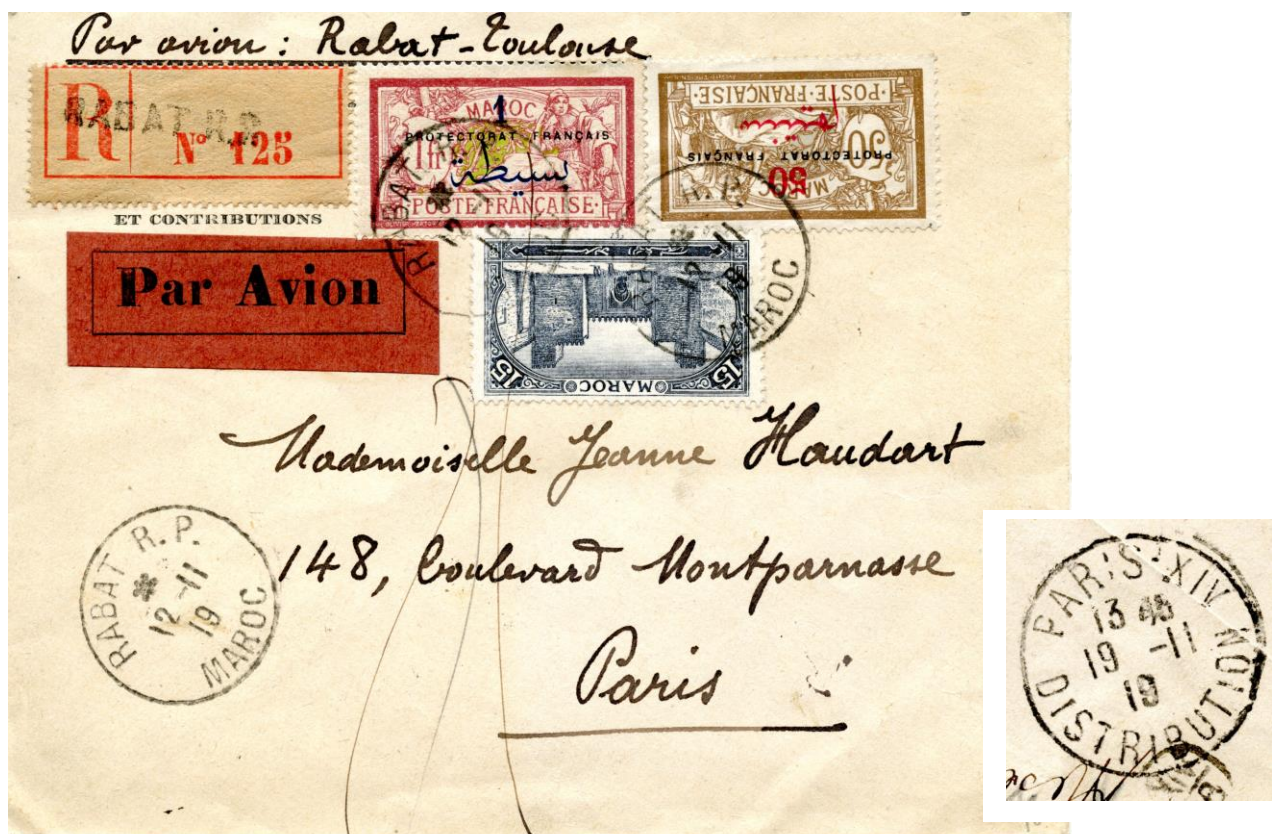 Par avion : Rabat-Toulouse
R
RABAT R.P.
N° 125
ET CONTRIBUTIONS
Par Avion
MAROC
1
PROTECTORAT FRANÇAIS
1 fr
بسيطة
POSTE FRANÇAISE
POSTE FRANÇAISE
50
PROTECTORAT FRANÇAIS
50
MAROC
15
MAROC
15
RABAT R.P.
12 -11
19
MAROC
RABAT R.P.
12 -11
19
MAROC
Mademoiselle Jeanne Haudart
148, Boulevard Montparnasse
Paris
RABAT R.P.
12 -11
19
MAROC
PARIS XIV
13 45
19 -11
19
DISTRIBUTION